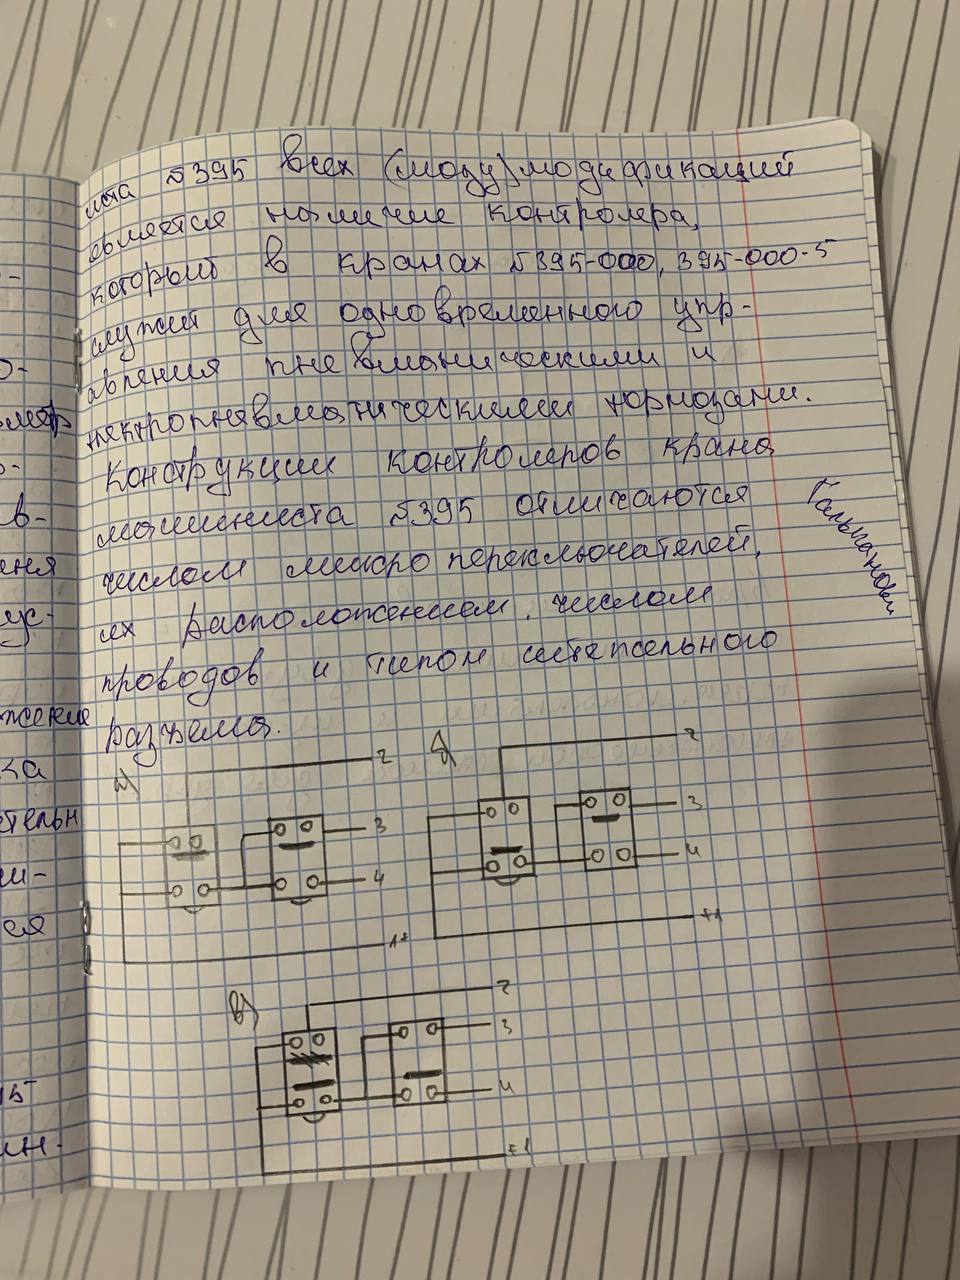 ж-
о-
ь-
в-
ус-
жение
ка
и-
ся
15
ин-
иста №395 всех (моду) модификаций
является наличие контролера,
который в кранах №395-000, 395-000-5
служит для одновременного упр-
авления пневманическими и
электропневматическими тормозами.
Конструкции контролеров крана
машиниста №395 отличаются
числом микропереключателей,
их расположением, числом
проводов и типом штепсельного
разъема.
Гальпанович
а)
2
3
4
1+
б)
2
3
4
+1
в)
2
3
4
+1